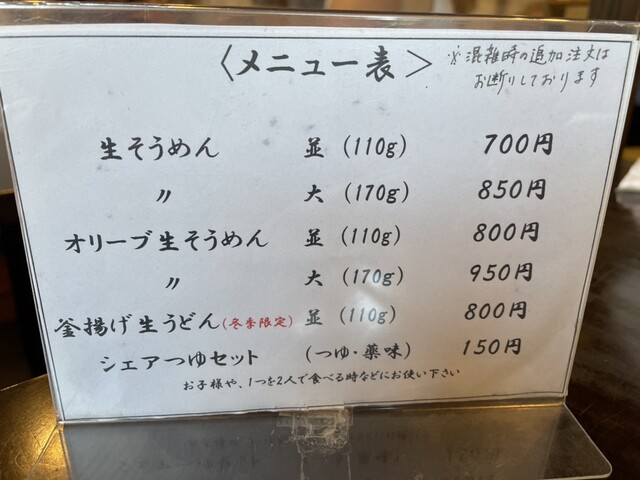 〈メニュー表〉
※混雑時の追加注文は
お断りしております
生そうめん 並 (110g) 700円
〃 大 (170g) 850円
オリーブ生そうめん 並 (110g) 800円
〃 大 (170g) 950円
釜揚げ生うどん(冬季限定) 並 (110g) 800円
シェアつゆセット (つゆ・薬味) 150円
お子様や、1つを2人で食べる時などにお使い下さい